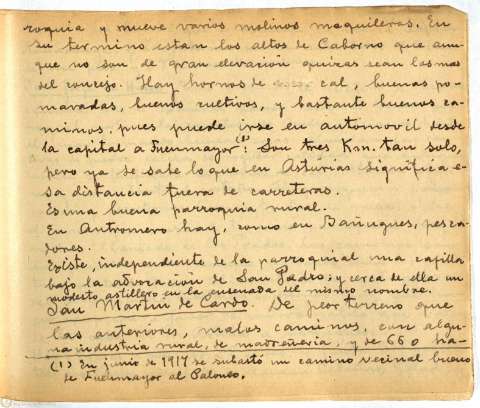 roquia y mueve varios molinos maquileros. En
su termino estan los altos de Caborno que aun-
que no son de gran elevación quizas sean los mas
del concejo. Hay hornos de cal, buenas po-
maradas, buenos cultivos, y bastante buenos ca-
minos, pues puede irse en automovil desde
la capital a Fuenmayor (1): Son tres Km. tan solo,
pero ya se sabe lo que en Asturias significa e-
sa distancia fuera de carreteras.
Es una buena parroquia rural.
En Antromero hay, como en Bañugues, pesca-
dores.
Existe, independiente de la parroquial una capilla
bajo la advocación de San Pedro; y cerca de ella un
modesto astillero en la ensenada del mismo nombre.
San Martin de Cardo. De peor terreno que
las anteriores, malos caminos, con algu-
na industria rural, de madreñeria, y de 660 ha-
(1) En junio de 1917 se subastó un camino vecinal bueno
de Fuenmayor al